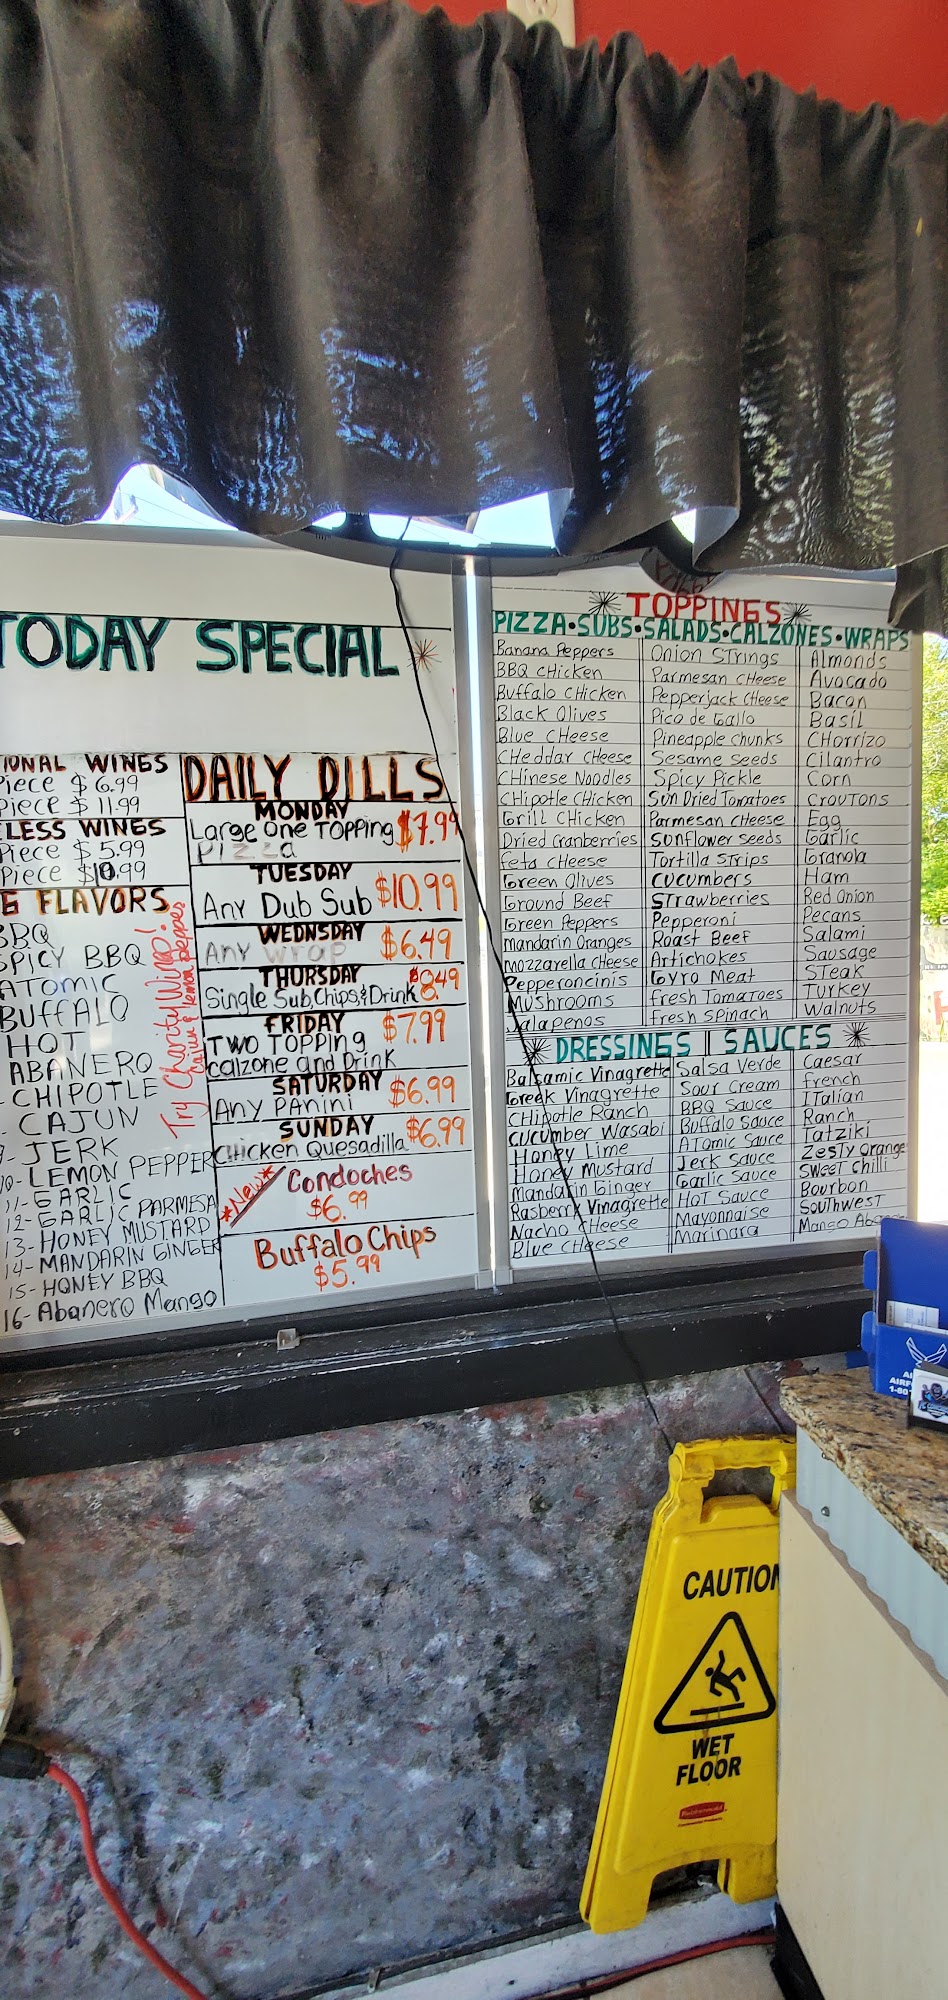 TODAY SPECIAL
IONAL WINGS
Piece $6.99
Piece $11.99
LESS WINGS
Piece $5.99
Piece $10.99
G FLAVORS
BBQ
SPICY BBQ
ATOMIC
BUFFALO
HOT
ABANERO
CHIPOTLE
CAJUN
JERK
10- LEMON PEPPER
11- GARLIC
12- GARLIC PARMESA
13- HONEY MUSTARD
14- MANDARIN GINGER
15- HONEY BBQ
16- Abanero Mango
Try Charity Wing!
Cajun & lemon pepper
DAILY DILLS
MONDAY
Large one Topping $7.99
Pizza
TUESDAY
Any Dub Sub $10.99
WEDNSDAY
Any wrap $6.49
THURSDAY $8.49
Single Sub, Chips & Drink
FRIDAY $7.99
TWO TOPPing
calzone and Drink
SATURDAY
Any PAnini $6.99
SUNDAY
CHicken Quesadilla $6.99
*New* Condoches
$6.99
Buffalo Chips
$5.99
TOPPINGS
PIZZA•SUBS•SALADS•CALZONES•WRAPS
Banana Peppers
BBQ CHicken
Buffalo CHicken
Black Olives
Blue CHeese
CHeddar CHeese
CHinese Noodles
CHipotle CHicken
Grill CHicken
Dried Cranberries
feta cHeese
Green Olives
Ground Beef
Green Peppers
Mandarin Oranges
Mozzarella CHeese
Pepperoncinis
Mushrooms
Jalapenos
Onion STrings
Parmesan CHeese
Pepperjack CHeese
Pico de Gallo
Pineapple Chunks
Sesame Seeds
Spicy Pickle
Sun Dried Tomatoes
Parmesan cHeese
Sunflower seeds
Tortilla Strips
CUCUmbers
STrawberries
Pepperoni
Roast Beef
Artichokes
Gyro Meat
fresh Tomatoes
fresh SPinach
Almonds
Avocado
Bacon
Basil
CHorrizo
Cilantro
Corn
CrouTons
Egg
Garlic
Granola
Ham
Red Onion
Pecans
Salami
Sausage
STeak
Turkey
Walnuts
DRESSINGS || SAUCES
Balsamic Vinagrette
Greek Vinagrette
CHipotle Ranch
CUCUmber Wasabi
Honey Lime
Honey Mustard
Mandarin Ginger
Rasberry Vinagrette
Nacho CHeese
Blue CHeese
Salsa Verde
Sour Cream
BBQ Sauce
Buffalo Sauce
ATomic Sauce
Jerk Sauce
Garlic Sauce
HoT Sauce
Mayonnaise
Marinara
Caesar
french
ITalian
Ranch
Tatziki
Zesty Orange
Sweet CHilli
Bourbon
SouthwesT
Mango
CAUTION
WET
FLOOR
Rubbermaid